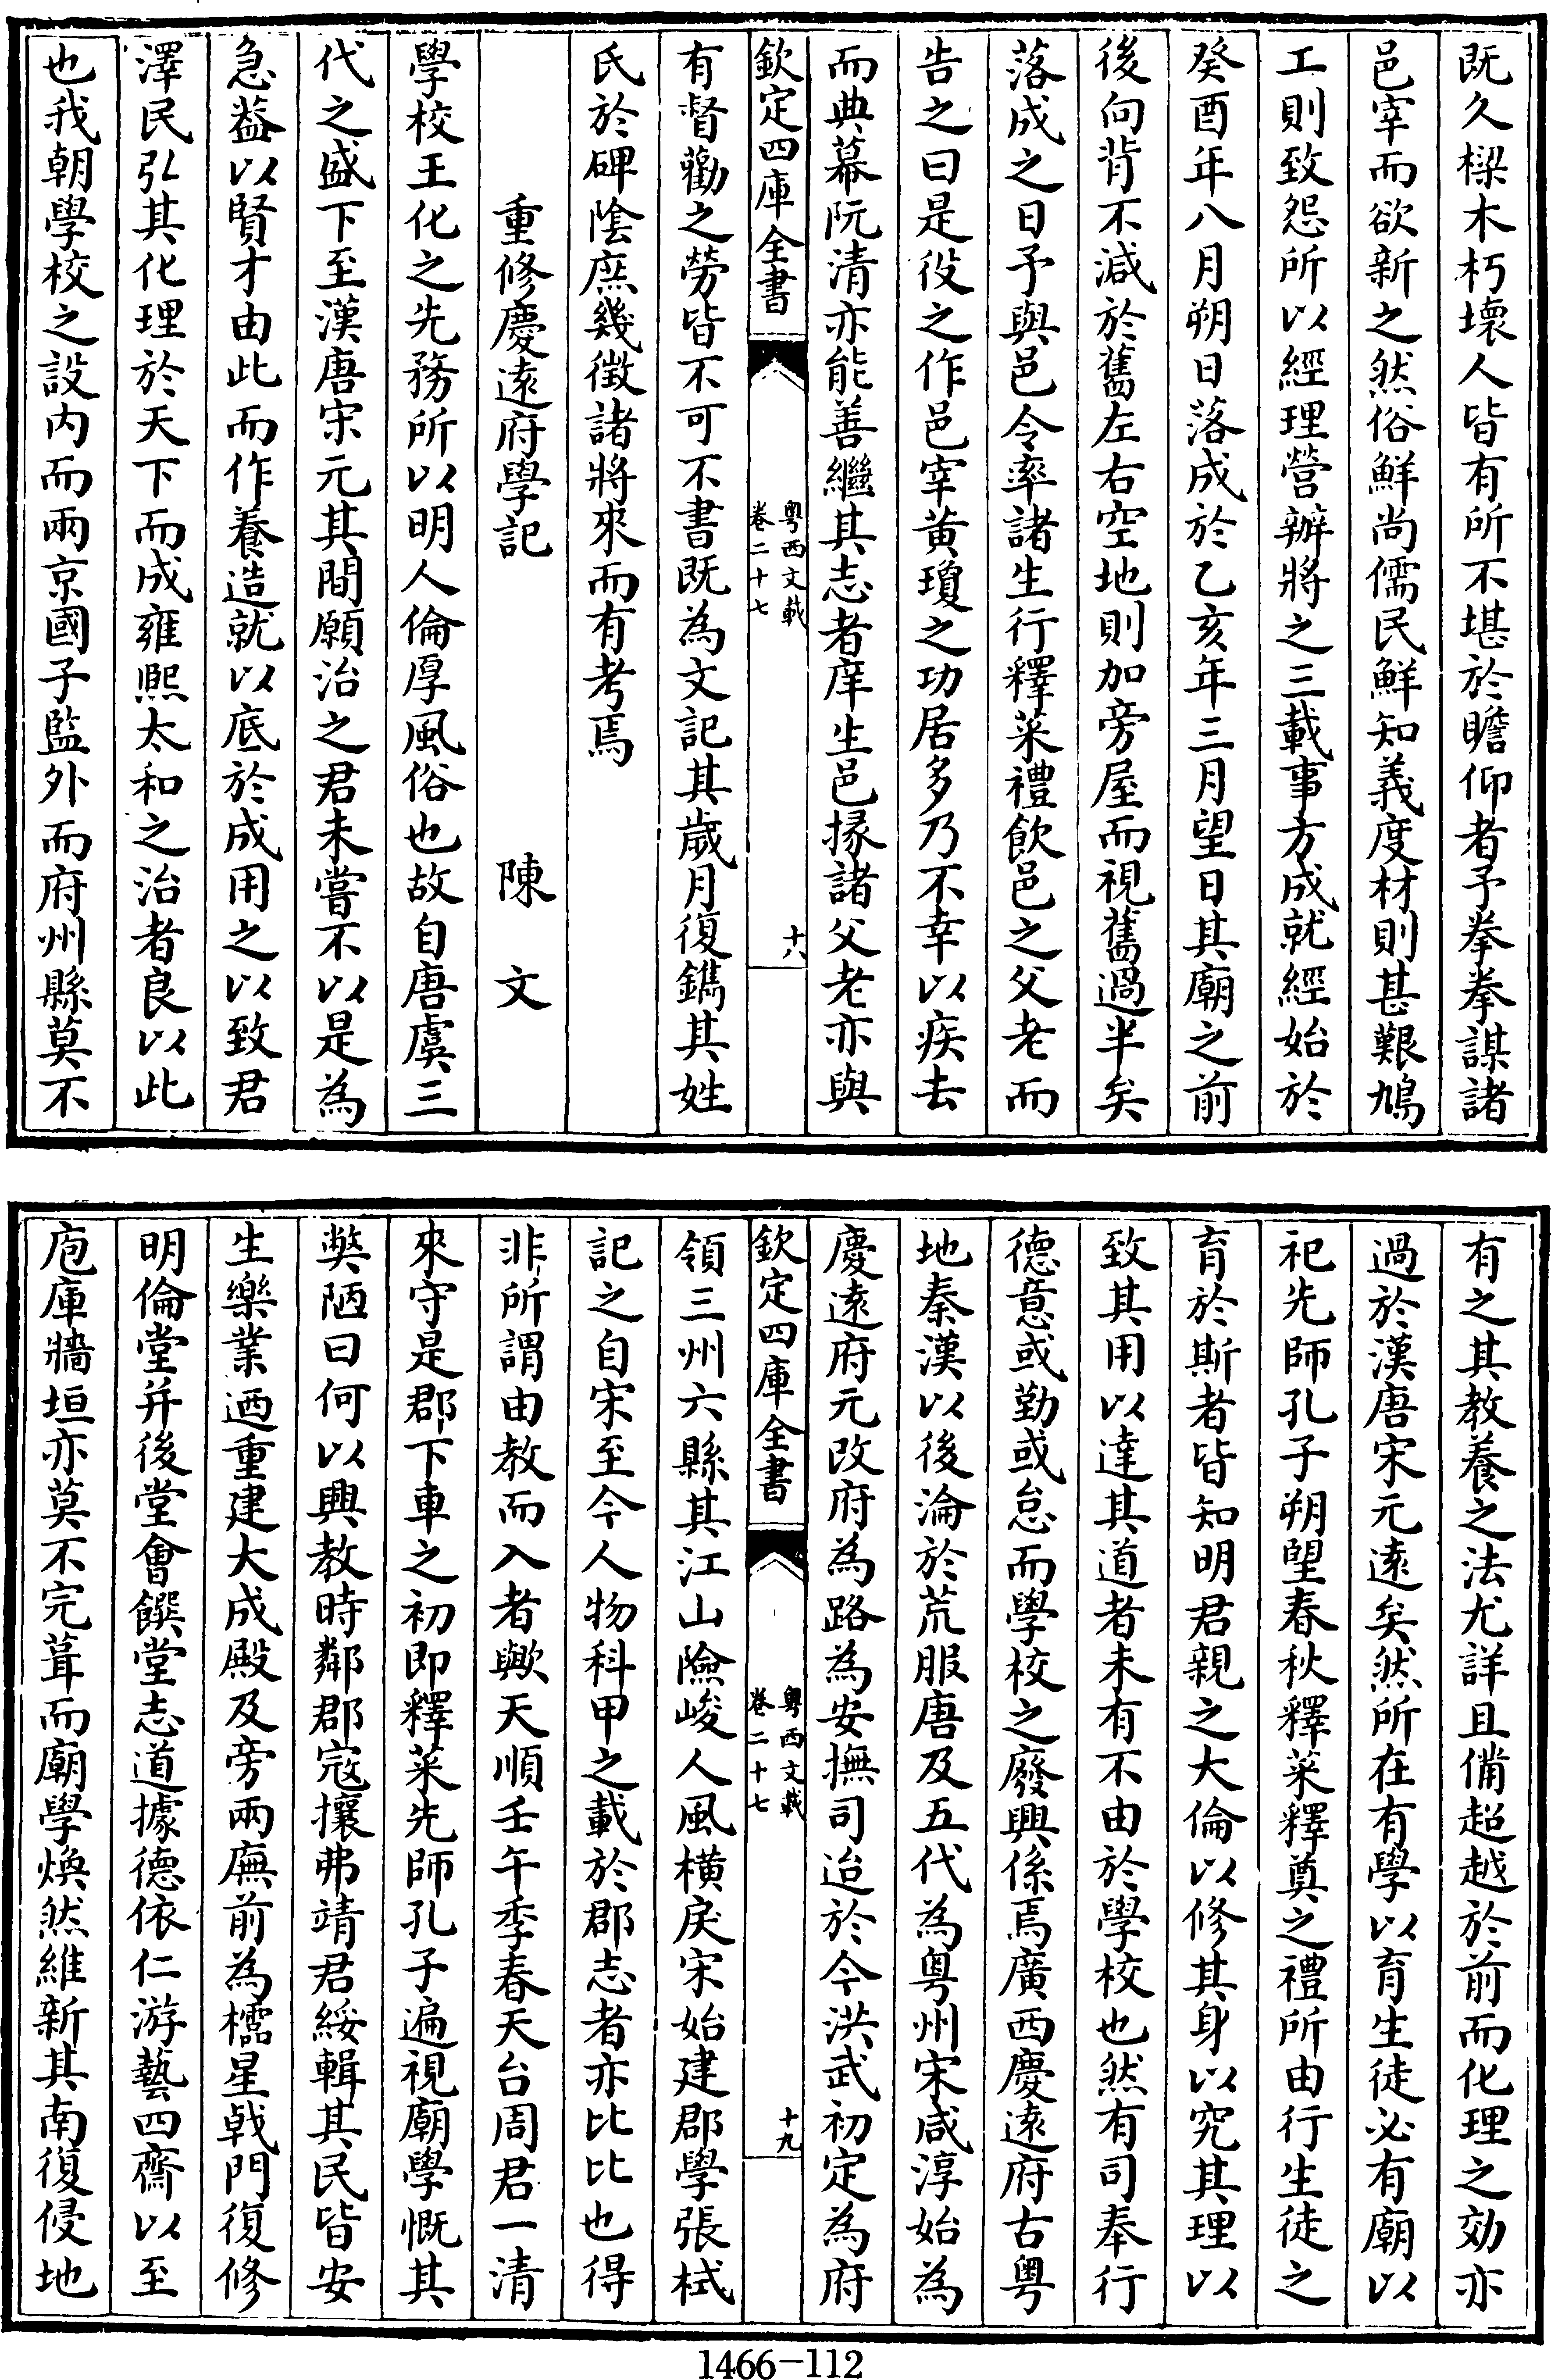 既久樑木朽壞人皆有所不堪於瞻仰者予拳拳謀諸
邑宰而欲新之然俗鮮尚儒民鮮知義度材則甚艱鳩
工則致怨所以經理營辦將之三載事方成就經始於
癸酉年八月朔日落成於乙亥年三月望日其廟之前
後向背不減於舊左右空地則加旁屋而視舊過半矣
落成之日予與邑令率諸生行釋菜禮飲邑之父老而
告之曰是役之作邑宰黃瓊之功居多乃不幸以疾去
而典幕阮清亦能善繼其志者庠生邑掾諸父老亦與
欽定四庫全書
粵西文載
卷二十七
十八
有督勸之勞皆不可不書既為文記其歲月復鐫其姓
氏於碑陰庶幾徵諸將來而有考焉
重修慶遠府學記 陳文
學校王化之先務所以明人倫厚風俗也故自唐虞三
代之盛下至漢唐宋元其間願治之君未嘗不以是為
急葢以賢才由此而作養造就以底於成用之以致君
澤民弘其化理於天下而成雍熙太和之治者良以此
也我朝學校之設内而兩京國子監外而府州縣莫不
有之其教養之法尤詳且備超越於前而化理之効亦
過於漢唐宋元遠矣然所在有學以育生徒必有廟以
祀先師孔子朔望春秋釋菜釋奠之禮所由行生徒之
育於斯者皆知明君親之大倫以修其身以究其理以
致其用以達其道者未有不由於學校也然有司奉行
德意或勤或怠而學校之廢興係焉廣西慶遠府古粵
地秦漢以後淪於荒服唐及五代為粵州宋咸淳始為
慶遠府元改府為路為安撫司迨於今洪武初定為府
欽定四庫全書
粵西文載
卷二十七
十九
領三州六縣其江山險峻人風横戾宋始建郡學張栻
記之自宋至今人物科甲之載於郡志者亦比比也得
非所謂由教而入者歟天順壬午季春天台周君一清
來守是郡下車之初即釋菜先師孔子遍視廟學慨其
獘陋曰何以興教時鄰郡寇攘弗靖君綏輯其民皆安
生樂業迺重建大成殿及旁兩廡前為櫺星㦸門復修
明倫堂并後堂會饌堂志道據德依仁游藝四齋以至
庖庫牆垣亦莫不完葺而廟學煥然維新其南復侵地
1466-112